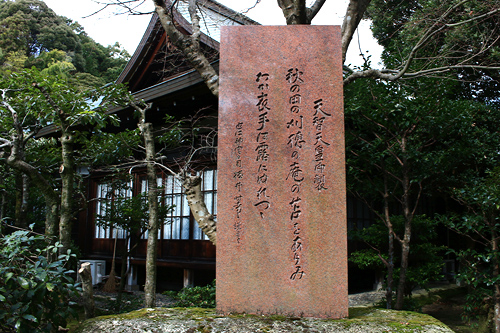 天智天皇御製
秋の田の刈穂の庵の苫をあらみ
わが衣手は露にぬれつゝ